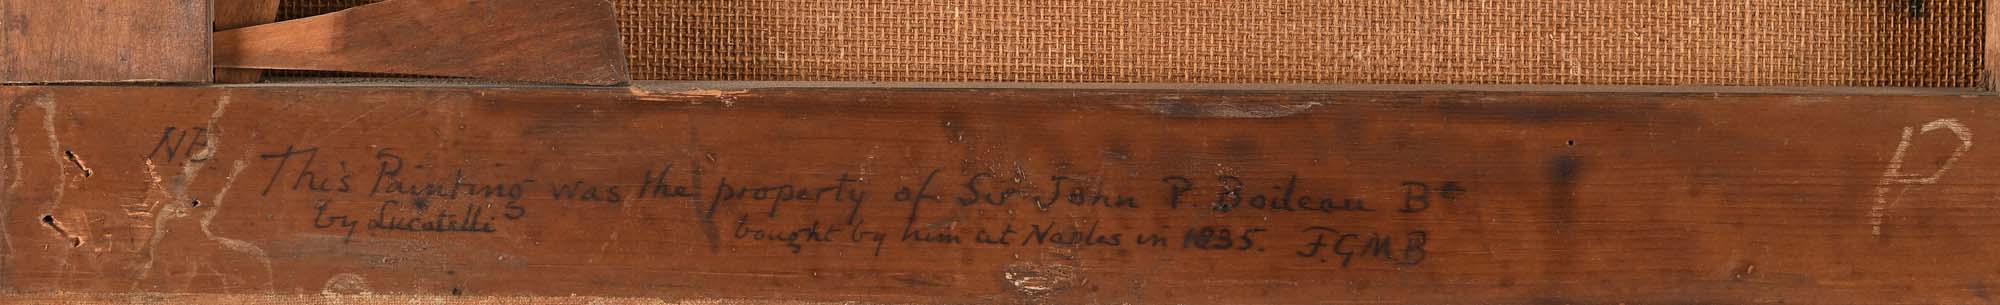 NB. This Painting was the property of Sir John P. Boileau Bt
by Lucatelli bought by him at Naples in 1835. F.G.M.B
P